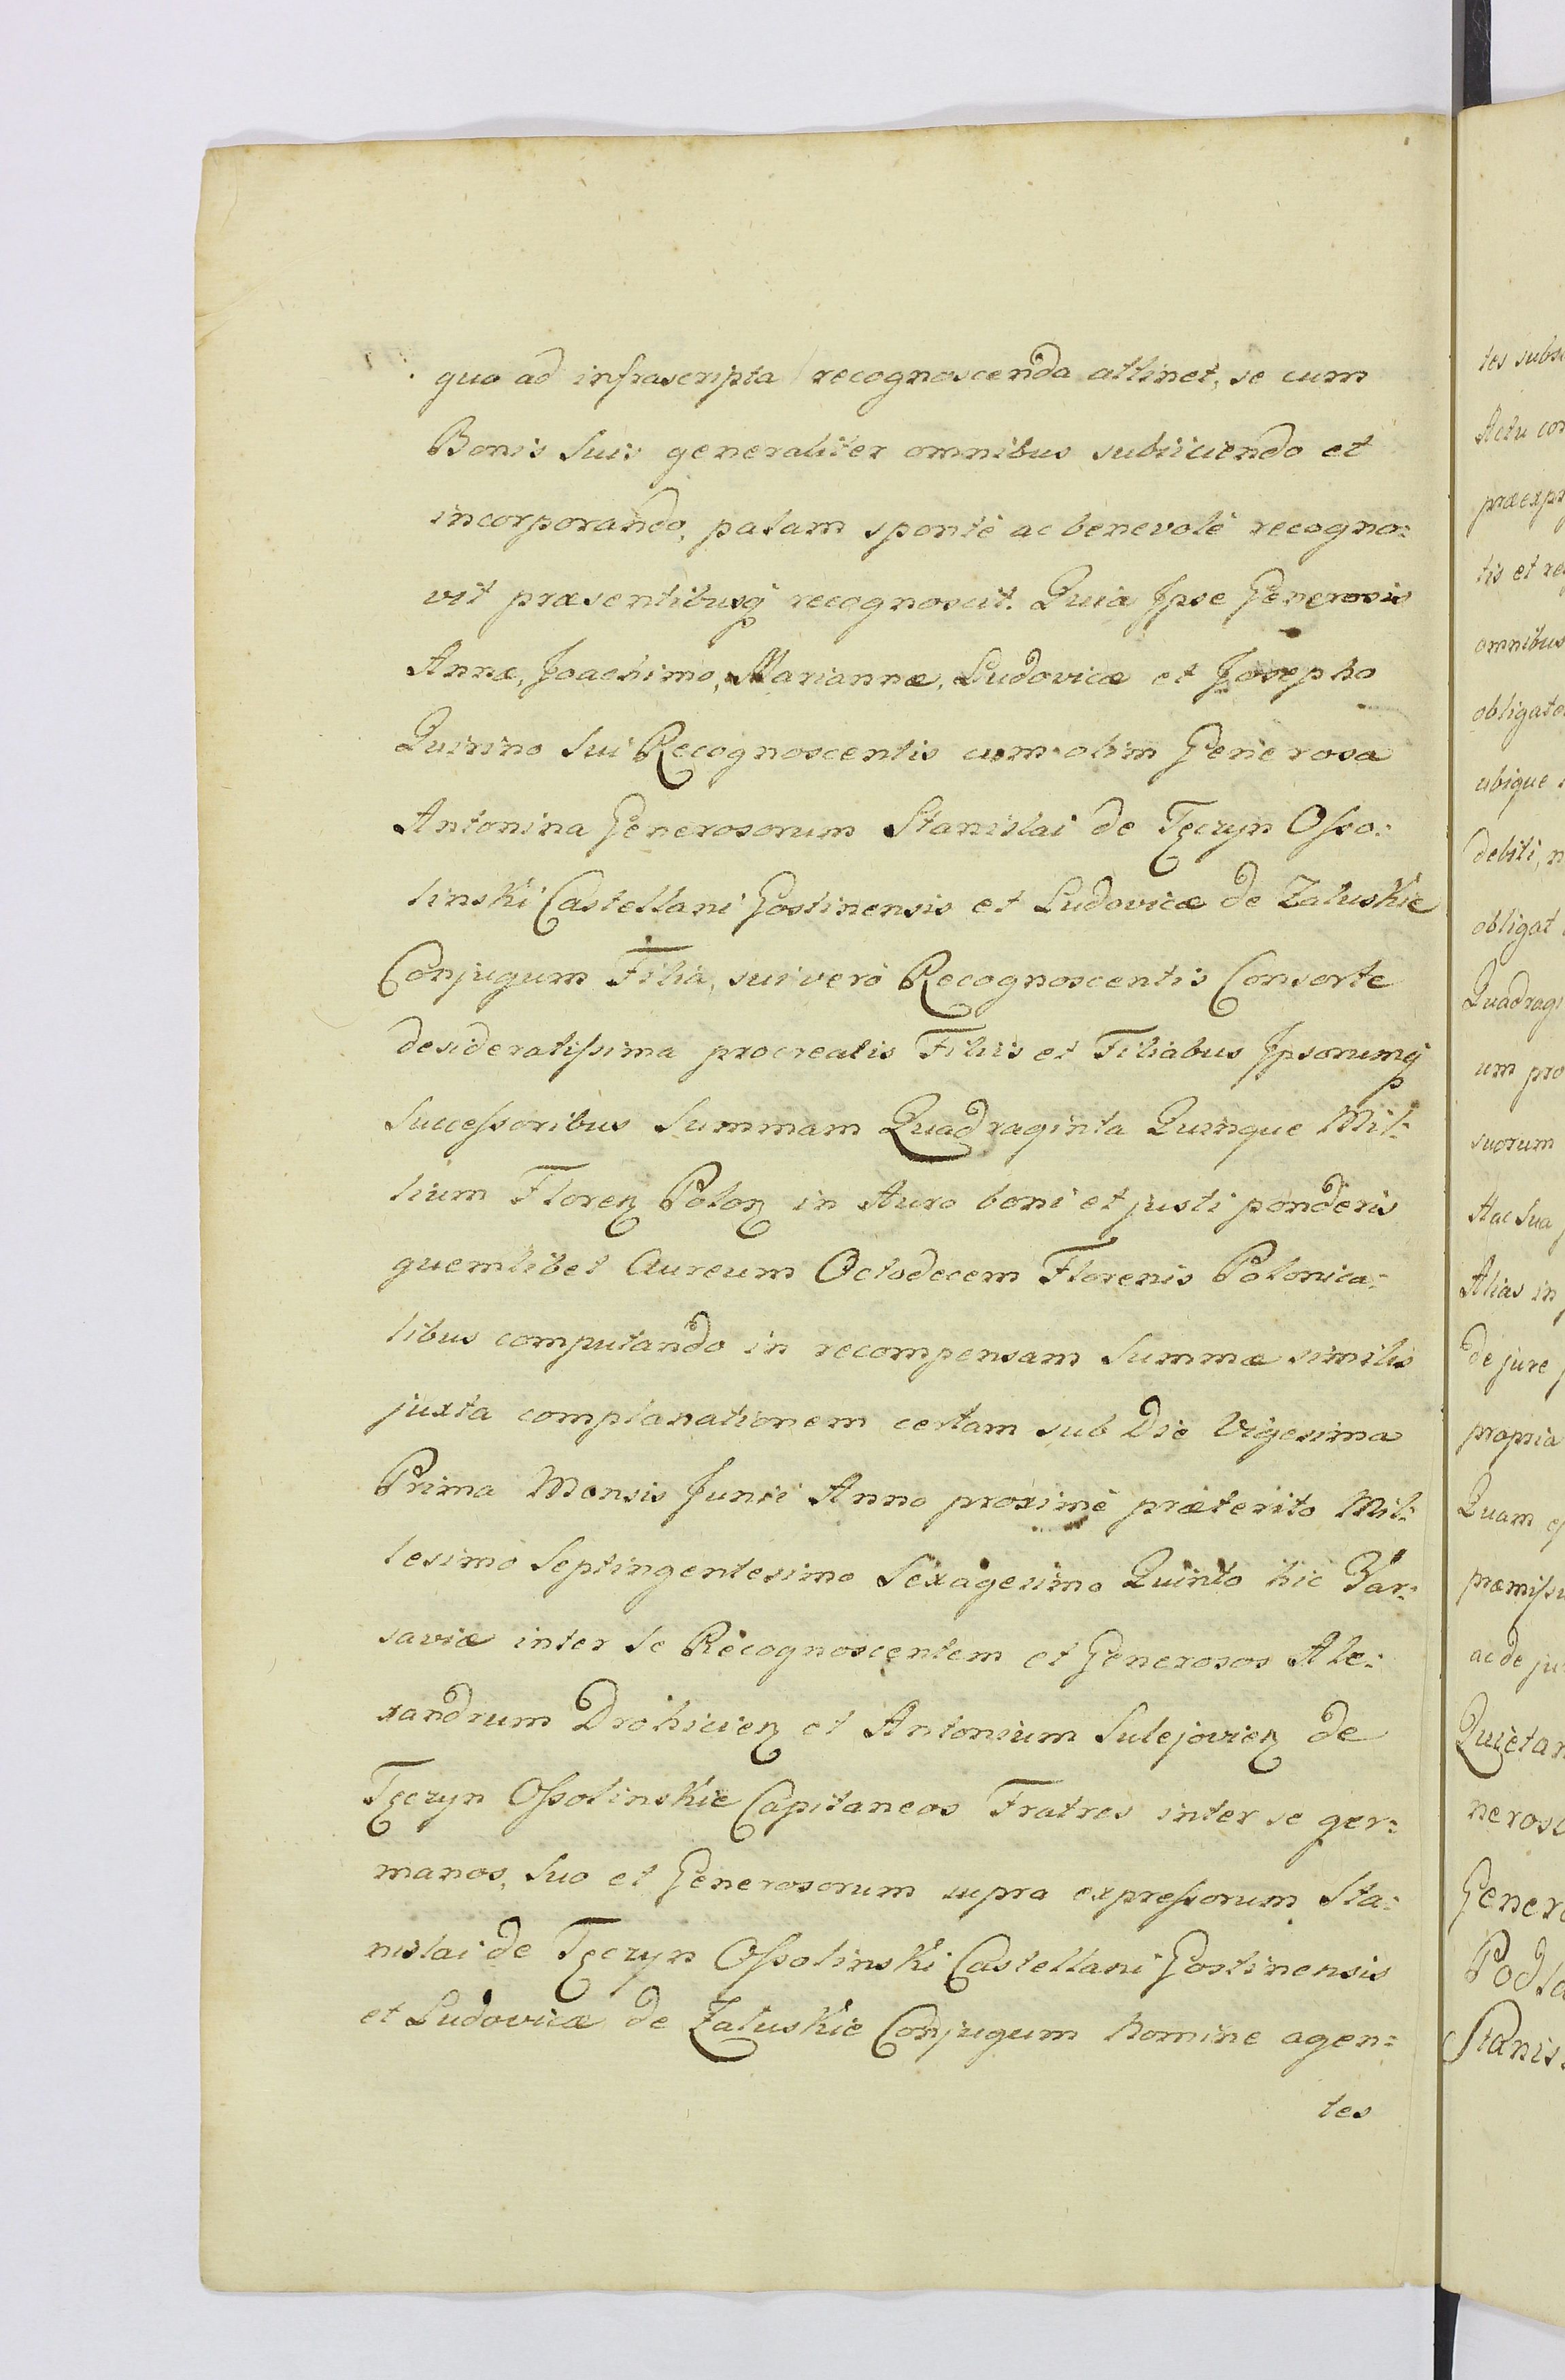 quo ad infrascripta recognoscenda attinet, se cum
Bonis Suis generaliter omnibus subiiciendo et
incorporando, palam spontè ac benevolè recogno:
vit præsentibusq recognoscit. Quia Ipse Generosis
Annæ, Joachimo, Mariannæ, Ludovicæ et Josepho
Quirino Sui Recognoscentis cum olim Generosa
Antonina Generosorum Stanislai de Tęczyn Osso:
linski Castellani Gostinensis et Ludovicæ de Zaluskie
Conjugum Filia, sui verò Recognoscentis Consorte
desideratissima procreatis Filiis et Filiabus Ipsorumq
Successoribus Summam Quadraginta Quinque Mil:
lium Floren Polon in Auro boni et justi ponderis
quemlibet Aureum Octodecem Florenis Polonica:
libus computando in recompensam Summæ similis
juxta complanationem certam sub Die Vigesima
Prima Mensis Junii Anno proximè præterito Mil:
lesimo Septingentesimo Sexagesimo Quinto hic Var:
saviæ inter Se Recognoscentem et Generosos Ale:
xandrum Drohicien et Antonium Sulejovien de
Tęczyn Ossolinskie Capitaneos Fratres inter se ger:
manos, Suo et Generosorum supra expressorum Sta:
nislai de Tęczyn Ossolinski Castellani Gostinensis
et Ludovicæ de Zaluskie Conjugum Nomine agen:
tes
tes
Actu
tis et
omnibus
ubique
debiti,
obligat
um
suorum
Hac Sua
Alias in
de jure
propria
Quam
ac de